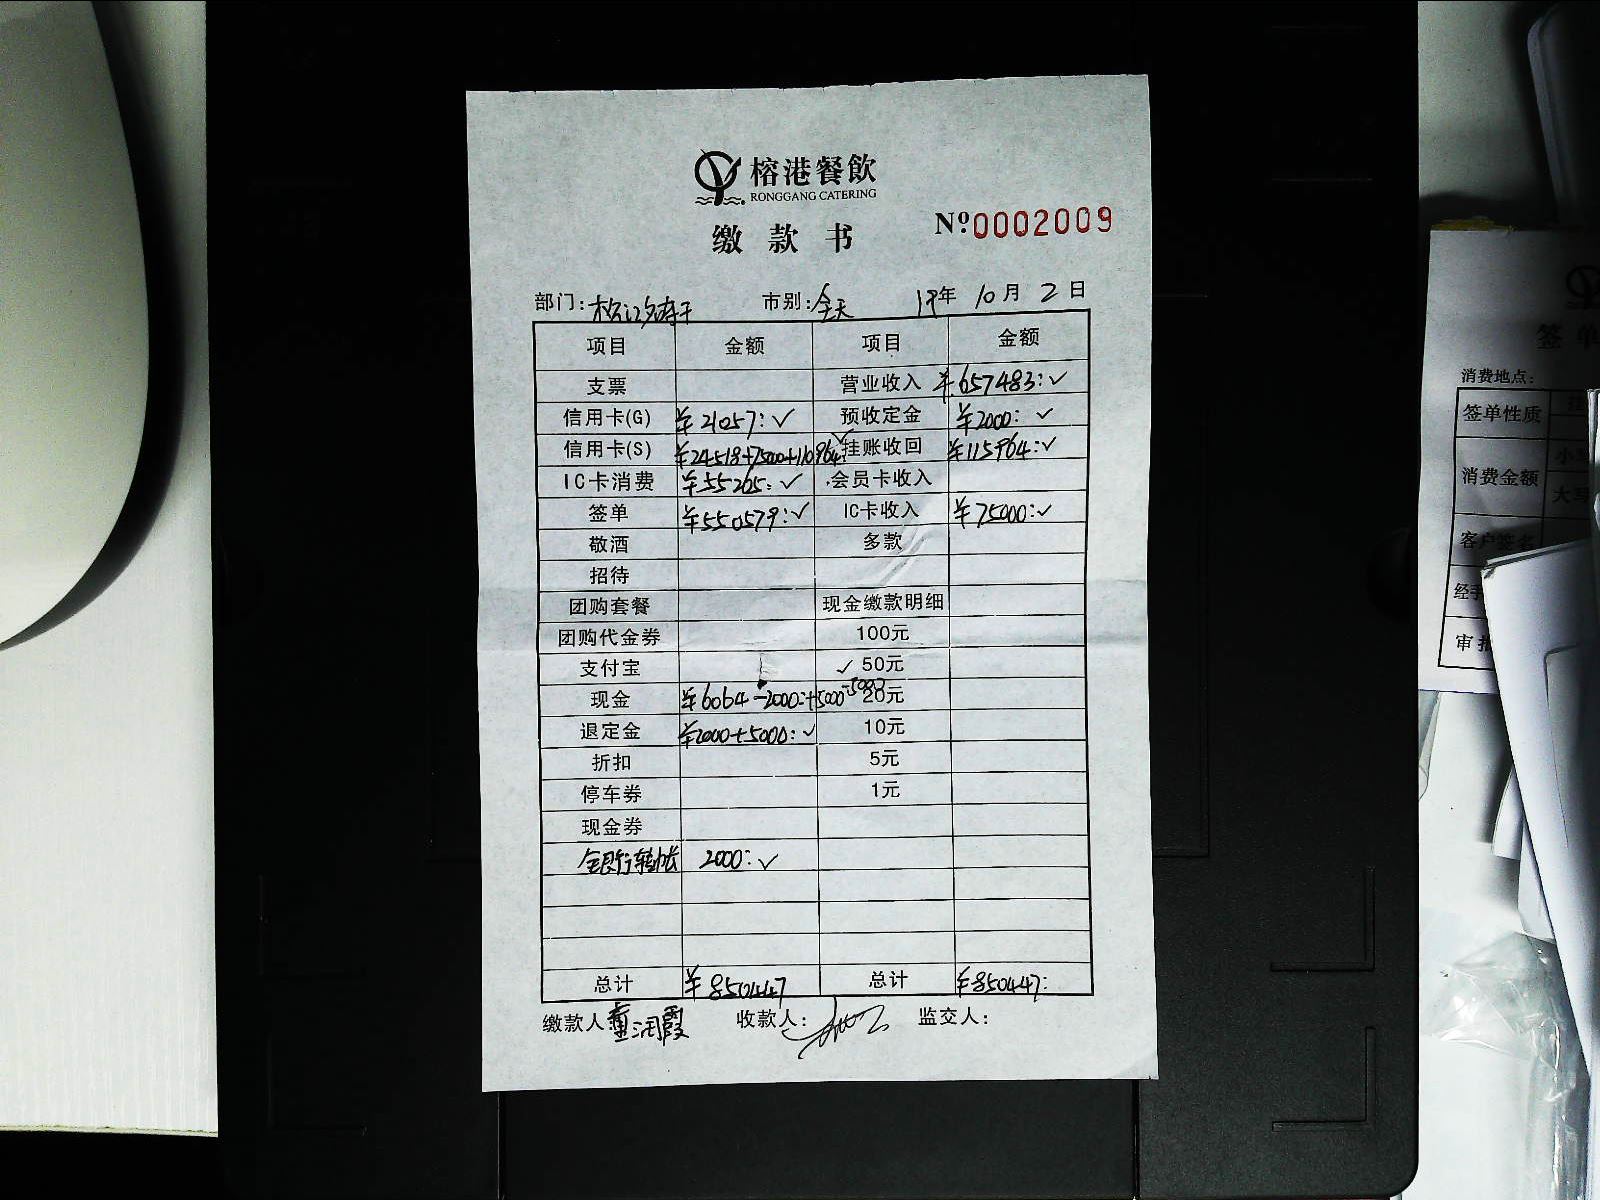 榕港餐飲
RONGGANG CATERING
缴款书
№0002009
部门: 市别:全天 19年10月2日
项目 金额 项目 金额
支票 营业收入 ¥657483:✓
信用卡(G) ¥21057:✓ 预收定金 ¥2000:✓
信用卡(S) ¥24518+75000+110964:✓ 挂账收回 ¥115964:✓
IC卡消费 ¥55265:✓ 会员卡收入
签单 ¥550579:✓ IC卡收入 ¥75000:✓
敬酒 多款
招待
团购套餐 现金缴款明细
团购代金券 100元
支付宝 ✓ 50元
现金 ¥6064-2000:+5000 20元
退定金 ¥2000+5000:✓ 10元
折扣 5元
停车券 1元
现金券
银行转帐 2000:✓
总计 ¥850447 总计 ¥850447:
缴款人:董润霞 收款人: 监交人:
签单
消费地点:
签单性质
消费金额 小写
大写
客户签名
经手
审批